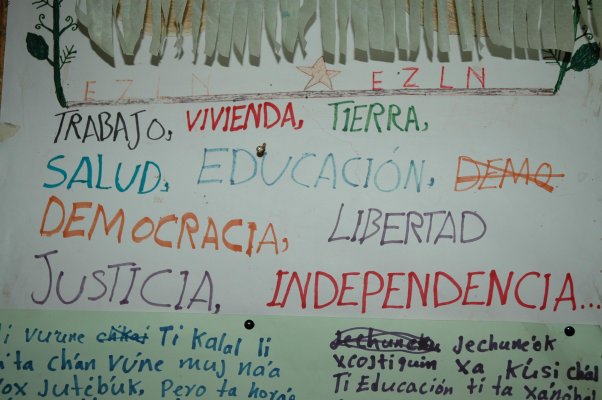 EZLN EZLN
TRABAJO, VIVIENDA, TIERRA,
SALUD, EDUCACIÓN, DEMO
DEMOCRACIA, LIBERTAD
JUSTICIA, INDEPENDENCIA...
vuune Ti Kalal li
ta chan vúne muj na'a
jutebuk, Pero ta
Jechune'ok
xcojtiquin xa kúsi
Ti Educación ti ta